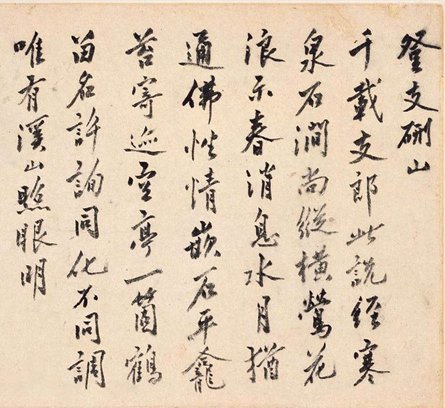 登支硎山
千載支郎此說經寒
泉石澗尚縱橫鶯花
浪示春消息水月猶
通佛性情嵌石平龕
苔寄迹空亭一箇鶴
留名許詢同化不同調
唯有溪山照眼明